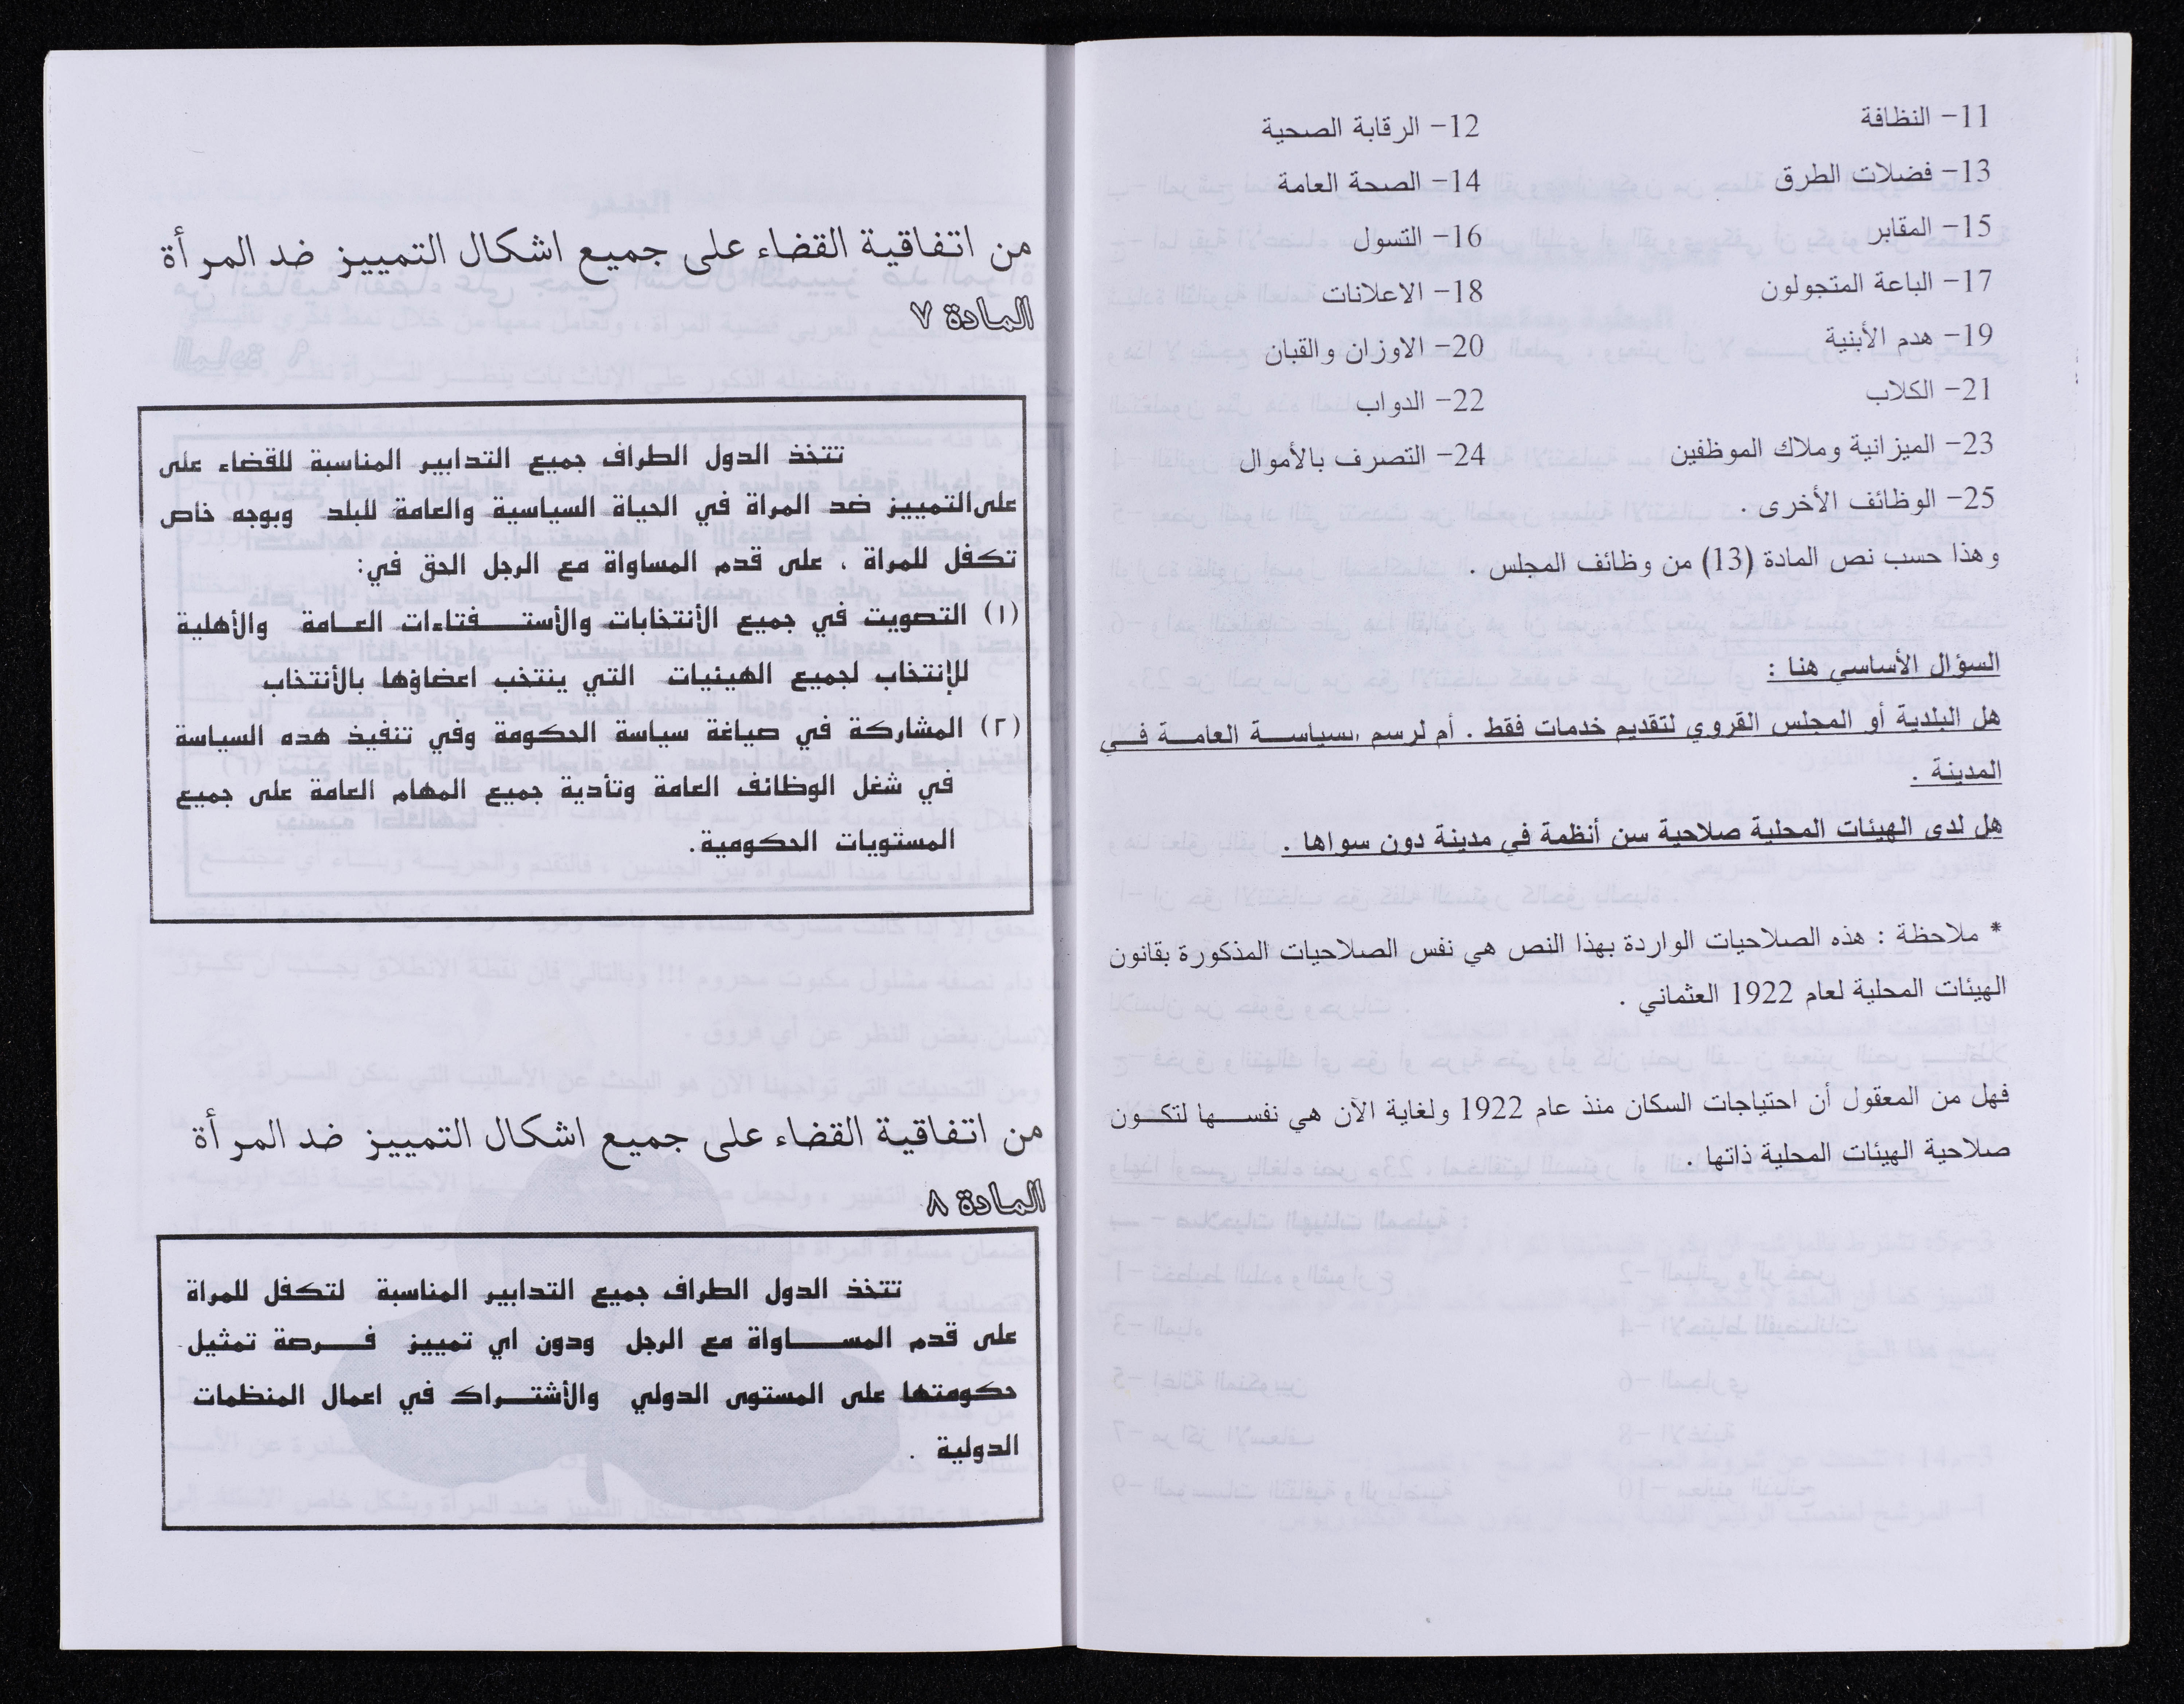 11- النظافة
12- الرقابة الصحية
13- فضلات الطرق
14- الصحة العامة
15- المقابر
16- التسول
17- الباعة المتجولون
18- الاعلانات
19- هدم الأبنية
20- الاوزان والقبان
21- الكلاب
22- الدواب
23- الميزانية وملاك الموظفين
24- التصرف بالأموال
25- الوظائف الأخرى .
وهذا حسب نص المادة (13) من وظائف المجلس .
السؤال الأساسي هنا :
هل البلدية أو المجلس القروي لتقديم خدمات فقط . أم لرسم السياسة العامة في
المدينة .
هل لدى الهيئات المحلية صلاحية سن أنظمة في مدينة دون سواها .
* ملاحظة : هذه الصلاحيات الواردة بهذا النص هي نفس الصلاحيات المذكورة بقانون
الهيئات المحلية لعام 1922 العثماني .
فهل من المعقول أن احتياجات السكان منذ عام 1922 ولغاية الآن هي نفسها لتكون
صلاحية الهيئات المحلية ذاتها .
من اتفاقية القضاء على جميع اشكال التمييز ضد المرأة
المادة ٧
تتخذ الدول الطراف جميع التدابير المناسبة للقضاء على
على التمييز ضد المراة في الحياة السياسية والعامة للبلد وبوجه خاص
تكفل للمراة ، على قدم المساواة مع الرجل الحق في:
(١) التصويت في جميع الأنتخابات والأستفتاءات العامة والأهلية
للإنتخاب لجميع الهيئيات التي ينتخب اعضاؤها بالأنتخاب
(٢) المشاركة في صياغة سياسة الحكومة وفي تنفيذ هذه السياسة
في شغل الوظائف العامة وتأدية جميع المهام العامة على جميع
المستويات الحكومية.
من اتفاقية القضاء على جميع اشكال التمييز ضد المرأة
المادة ٨
تتخذ الدول الطراف جميع التدابير المناسبة لتكفل للمراة
على قدم المساواة مع الرجل ودون اي تمييز فرصة تمثيل
حكومتها على المستوى الدولي والأشتراك في اعمال المنظمات
الدولية .